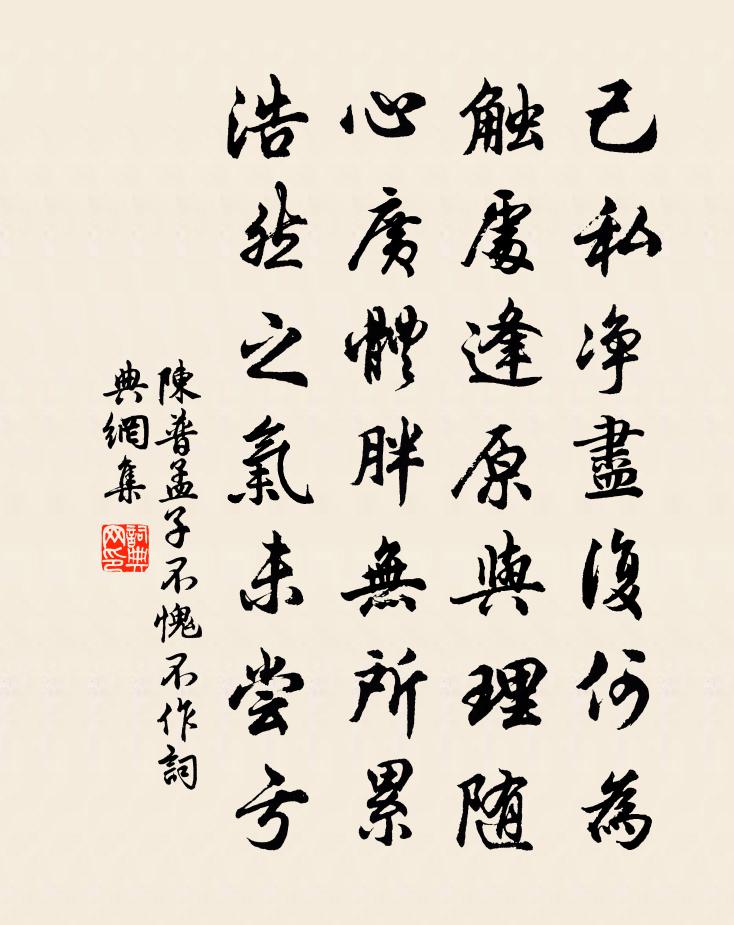 己私净盡復何為
触處逢原與理随
心廣體胖無所累
浩然之氣未尝亏
陳普孟子不愧不作詞
典網集
詞典网印